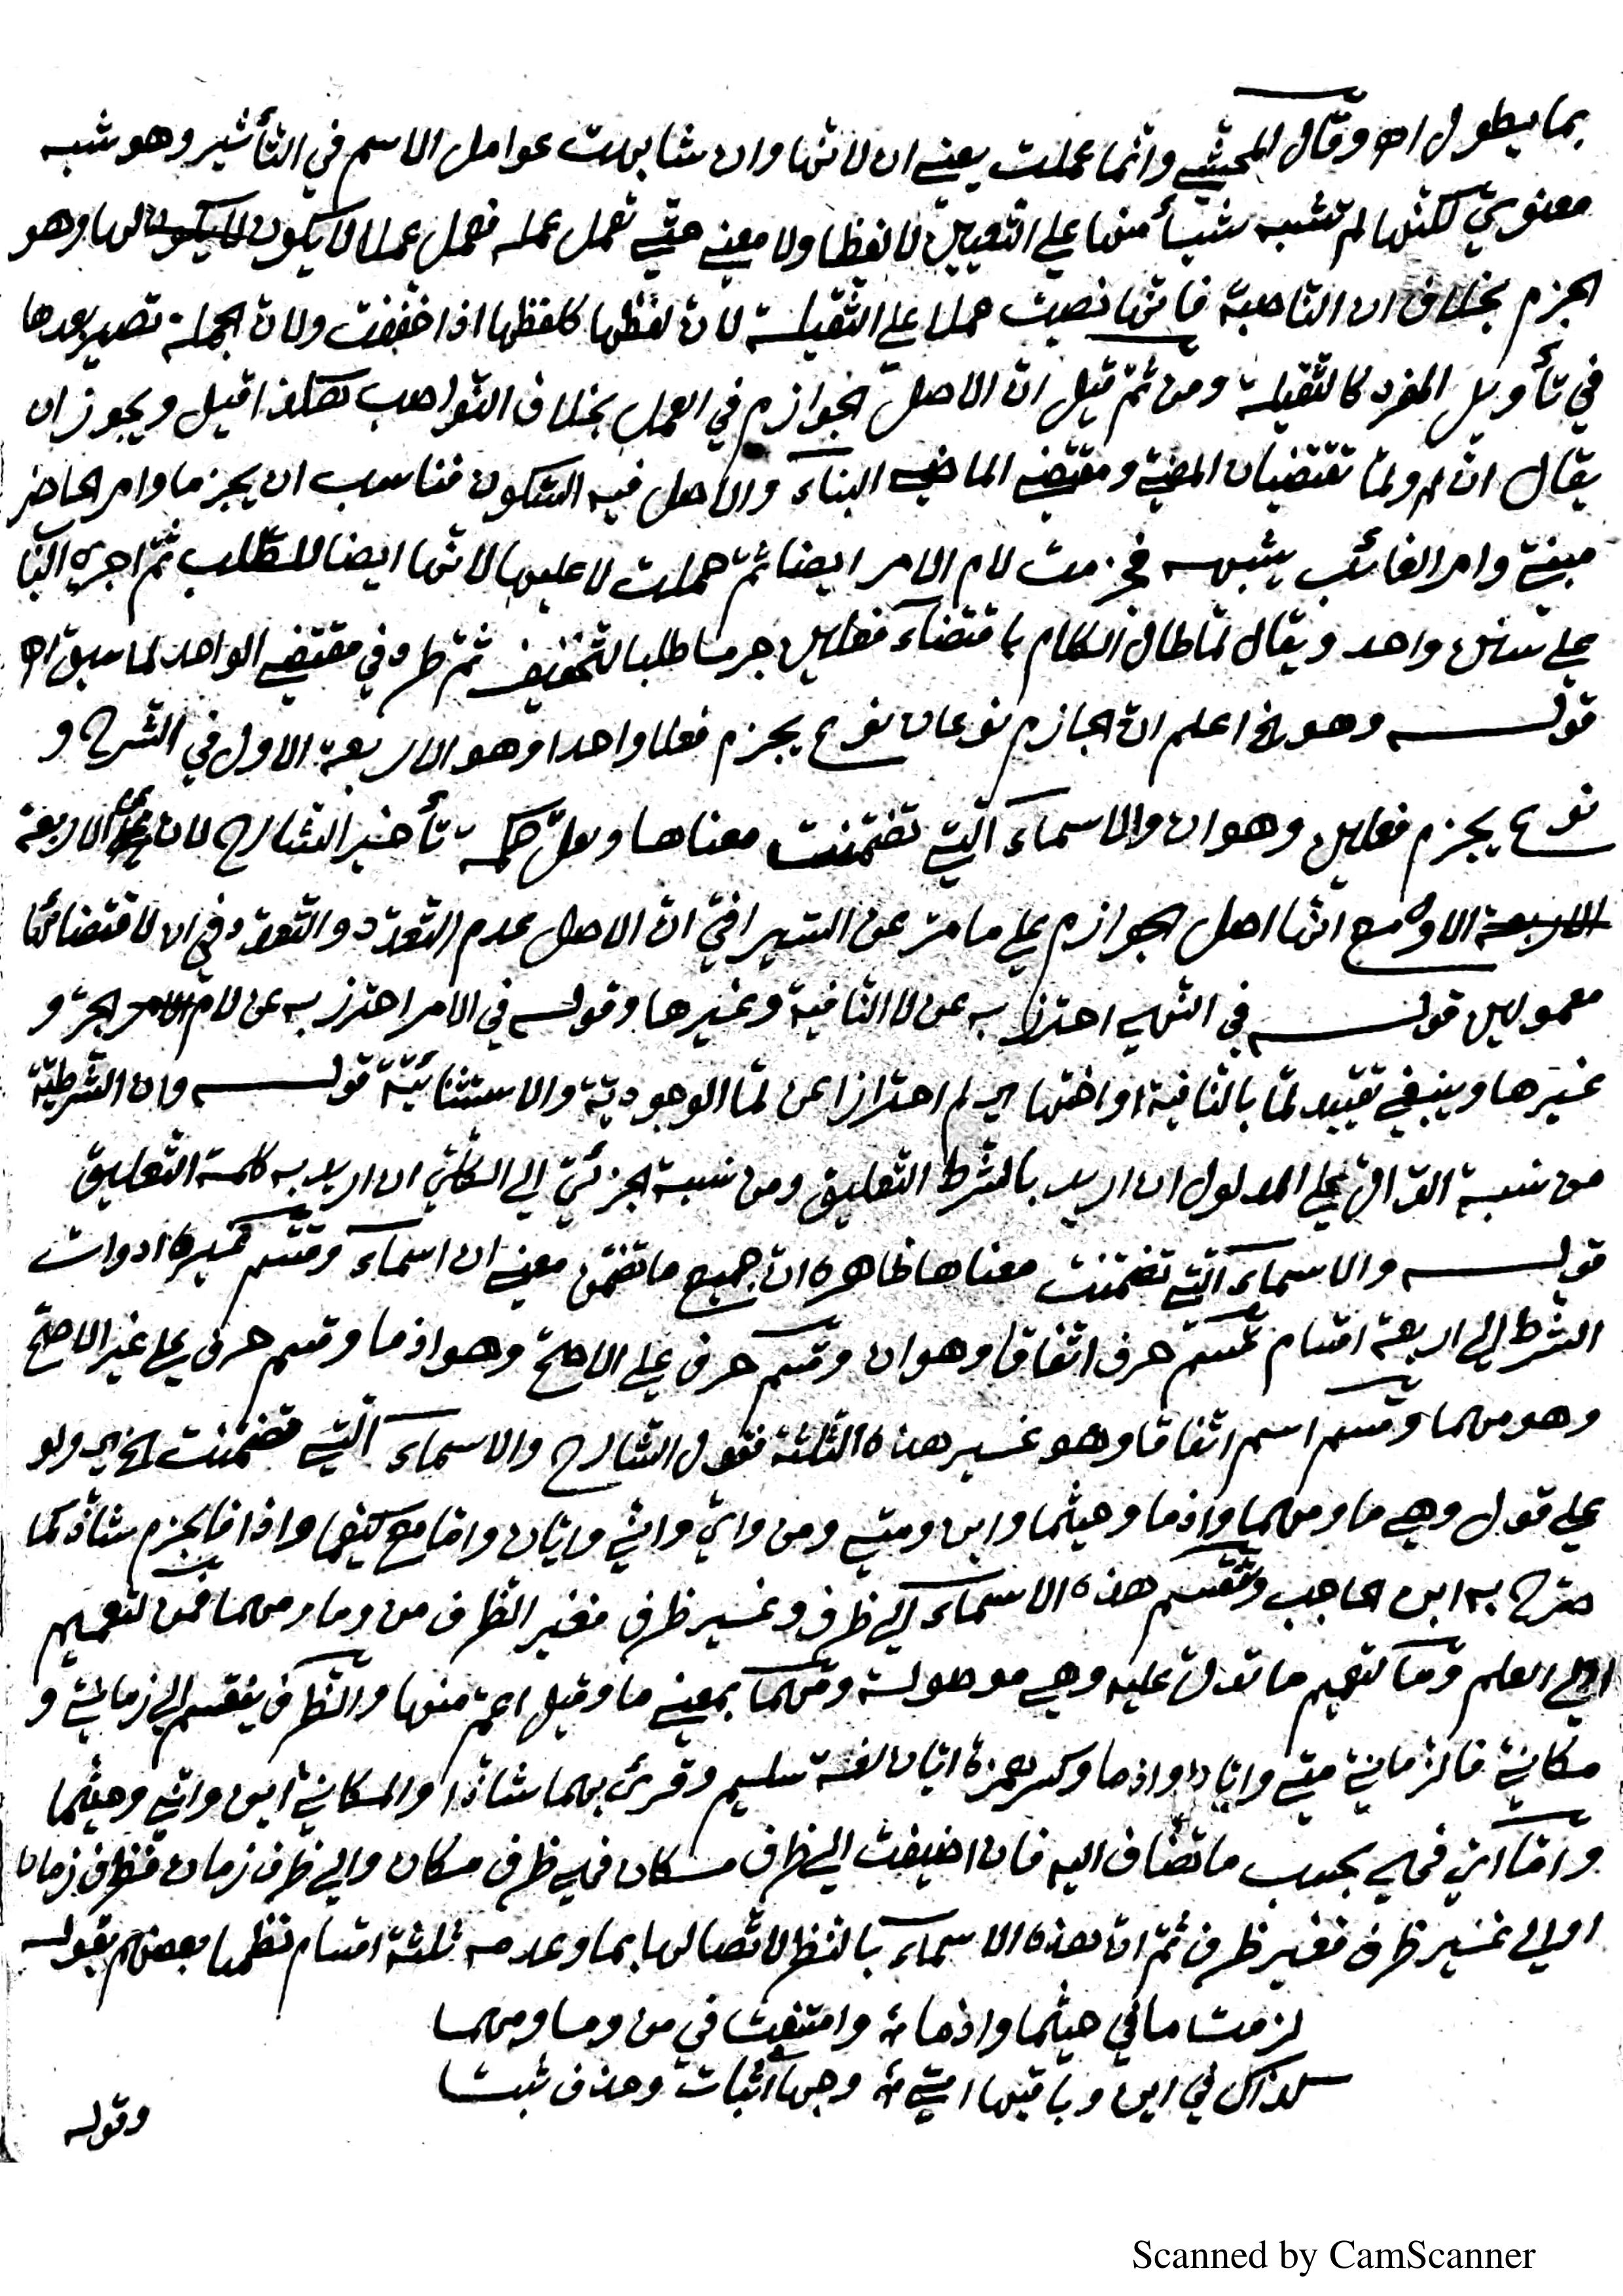 بما يطول اه وقال المحشي وانما عملت يعني ان لانها وان شابهت عوامل الاسم في التأثير وهو شبه
معنوي لكنها لم تشبه شيأ منها على التعيين لا لفظا ولا معنى حتى تعمل عمله فعمل عملا لا يكون لها وهو
الجزم بخلاف ان الناصبة فانها نصبت حملا على الثقيلة لان لفظها كلفظها اذا خففت ولان الجملة تصير بعدها
في تأويل المفرد كالثقيلة ومن ثم قيل ان الاصل الجوازم في العمل بخلاف النواصب هكذا قيل ويجوز ان
يقال ان لم ولما تقتضيان المضي ومقتضى الماضي البناء والاصل فيه السكون فناسب ان يجزما وامر الحاضر
مبني وامر الغائب يشبهه فجزمت لام الامر ايضا ثم حملت لا عليها لانها ايضا للطلب ثم اجرى البا
على سنن واحد ويقال لما طال الكلام باقتضاء فعلين جزما طلبا للتخفيف ثم طرد في مقتضى الواحد لما سبق اه
قوله وهو الخ اعلم ان الجازم نوعان نوع يجزم فعلا واحدا وهو الاربعة الاول في الشرح و
نوع يجزم فعلين وهو ان والاسماء التي تضمنت معناها ولعل حكمة تأخير الشارح لان عن الاربعة
الاول مع انها اصل الجوازم على ما مر عن السيرافي ان الاصل عدم التعدد والتعدد في ان لاقتضائها
معمولين قوله في النهي احترز به عن لا النافية وغيرها وقوله في الامر احترز به عن لام الجر و
غيرها وينبغي تقييد لما بالنافية او اختها اي لم احترازا عن لما الوجودية والاستثنائية قوله وان الشرطية
من نسبة الدال على المدلول ان اريد بالشرط التعليق ومن نسبة الجزئي الى الكلي ان اريد به كلمة التعليق
قوله والاسماء التي تضمنت معناها ظاهره ان جميع ما تضمن معنى ان اسماء وقسم غيره ادوات
الشرط الى اربعة اقسام قسم حرف اتفاقا وهو ان وقسم حرف على الاصح وهو اذما وقسم حرف على غير الاصح
وهو مهما وقسم اسم اتفاقا وهو غير هذه الثلثة فقول الشارح والاسماء التي تضمنت الخ اي ولو
على قول وهي ما ومهما واذما وحيثما واين ومتى ومن واي وانى وايان واما مع كيفما واذا فالجزم شاذ كما
صرح به ابن الحاجب وتقسم هذه الاسماء الى ظرف وغير ظرف فغير الظرف من وما ومهما فمن لتعميم
اولى العلم وما لتعميم ما تدل عليه وهي موصولة ومهما بمعنى ما وقيل اعم منها والظرف ينقسم الى زماني و
مكاني فالزماني متى وايان واذما وكسر همزة ايان لغة سليم وقرئ بهما شاذا والمكاني اين وانى وحيثما
واما اي فهي بحسب ما تضاف اليه فان اضيفت الى ظرف مكان فهي ظرف مكان والى ظرف زمان فظرف زمان
او الى غير ظرف فغير ظرف ثم ان هذه الاسماء بالنظر لاتصالها بما وعدمه ثلثة اقسام نظمها بعضهم بقوله
لزمت ما في حيثما واذما وامتنعت في من وما ومهما
كذاك في اين وباقيها اتى وجها اثبات وحذف ثبتا
وقوله
Scanned by CamScanner